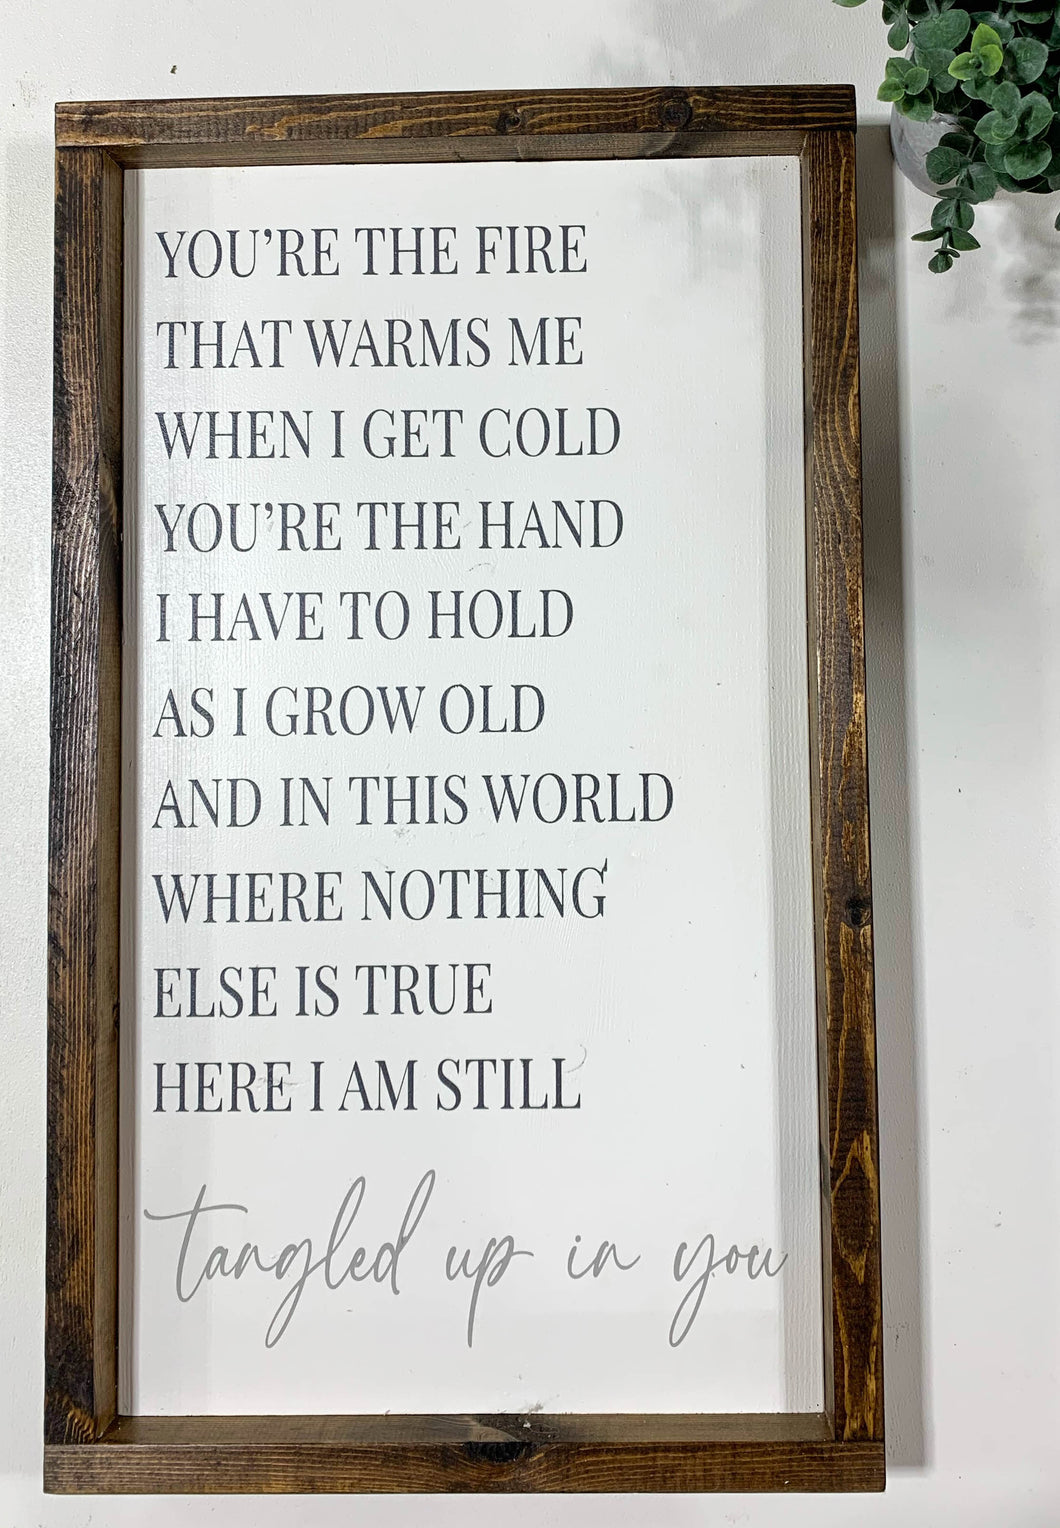 YOU'RE THE FIRE
THAT WARMS ME
WHEN I GET COLD
YOU'RE THE HAND
I HAVE TO HOLD
AS I GROW OLD
AND IN THIS WORLD
WHERE NOTHING
ELSE IS TRUE
HERE I AM STILL
tangled up in you